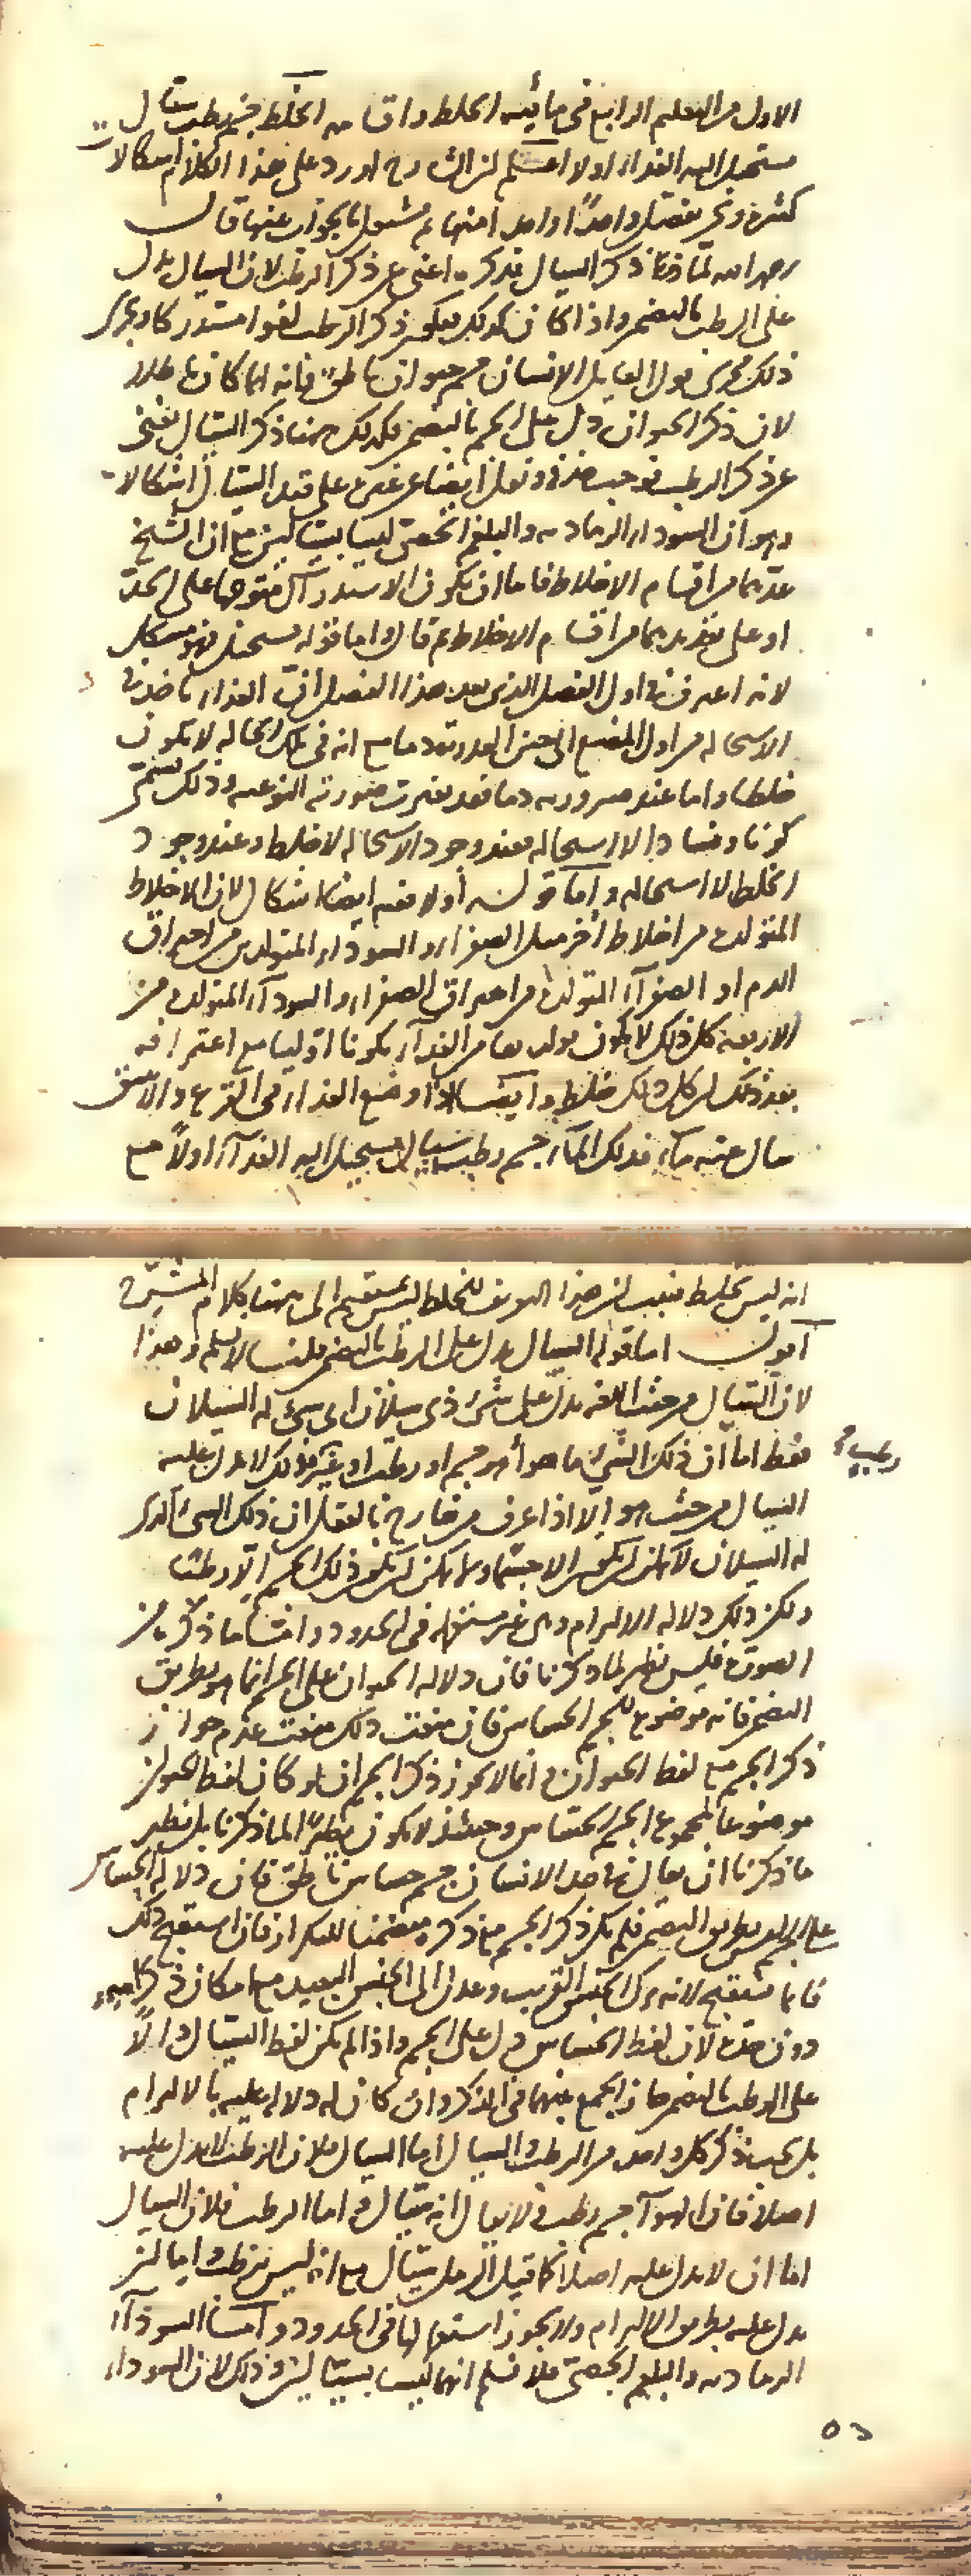 الاول من التعليم الرابع في مائية الخلط واقسامه الخلط جسم رطب سيال
مستحيل اليه الغذاء اولا اعلم ان الشارح اورد على هذا الكلام اشكالات
كثيرة ونحن نفصل واحدا واحدا منها ثم نشتغل بالجواب عنها قال
رحمه الله لماذا ذكر السيال بذكره اغنى عن ذكر الرطب لان السيال يدل
على الرطب بالتضمن واذا كان كذلك فيكون ذكر الرطب لغوا مستدركا ويجري
ذلك مجرى قول القايل الانسان جسم حيوان ناطق فانه انما كان باطلا
لان ذكر الحيوان دل على الجسم بالتضمن فكذلك ههنا ذكر السيال يغني
عن ذكر الرطب فوجب حذفه ونقل ايضا عن غيره على قيد السيال اشكالا
وهو ان السوداء الرمادية والبلغم الجصي ليسا بسيالين مع ان الشيخ
عدهما من اقسام الاخلاط فاما ان يكون الاستدراك متوجها على الحد
او على تعديدهما من اقسام الاخلاط ثم قال واما قوله مستحيل فهو مشكل
لانه اعترف في اول الفصل الذي بعد هذا الفصل ان الغذاء ياخذ في
الاستحالة من اول المضغ الى حين الصيرورة دما مع انه في تلك الحالة لا يكون
خلطا واما عند صيرورته دما فقد تغيرت صورته النوعية وذلك يسمى
كونا وفسادا لا استحالة فعند وجود الاستحالة لا خلط وعند وجود
الخلط لا استحالة واما قوله اولا ففيه ايضا اشكال لان الاخلاط
المتولدة من اخلاط أخر مثل الصفراء والسوداء المتولدين من احتراق
الدم او الصفرآء المتولدة من احتراق الصفراء والسودآء المتولدة من
الاربعة كل ذلك لا يكون تولدها من الغذآء تكونا اوليا مع اعترافه
بعد ذلك ان كل ذلك خلط وايضا اذا وضع الغذاء في القرع والانبيق
سال عنه مآء فذلك المآء جسم رطب سيال يستحيل اليه الغذآء اولاً مع
انه ليس بخلط فثبت ان هذا التعريف للخلط ليس بمستقيم الى ههنا كلام الشارح
أقول اما قوله السيال يدل على الرطب بالتضمن قلنا لا نسلم وهذا
لان السيال من حيث اللغة يدل على شيء ذي سيلان اي شيء له السيلان
فقط اما ان ذلك الشيء ما هو أهو جسم او رطب او غير ذلك لا يدل عليه
السيال من حيث هو الا اذا عرف من خارج بالعقل ان ذلك الشيء الذي
له السيلان لا يمكن ان يكون الا جسما ولا يمكن ان يكون ذلك الجسم الا رطبا
ولكن ذلك دلالة الالتزام وهي غير مستعملة في الحدود واما ما ذكره من
الصورة فليس نظير لما ذكرنا فان دلالة الحيوان على الجسم انما هو بطريق
التضمن فانه موضوع للجسم الحساس فان منعت ذلك منعت عدم جواز
ذكر الجسم مع لفظ الحيوان وانما لا يجوز ذكر الجسم ان لو كان لفظ الحيوان
موضوعا لمجموع الجسم الحساس وحينئذ لا يكون نظيرا لما ذكرنا بل نظير
ما ذكرنا ان يقال في حد الانسان جسم حساس ناطق فان دلالة الحساس
على الجسم ليس بطريق التضمن فلم يكن ذكر الجسم مع ذكره متضمنا للتكرار فان استقبح ذلك
فانما يستقبح لانه ترك الجنس القريب وعدل الى الجنس البعيد مع امكان
دون حده لان لفظ الحساس دل على الجسم واذا لم يكن لفظ السيال دالاً
على الرطب بالتضمن جاز الجمع بينهما في الذكر وان كان له دلالة عليه بالالتزام
بل يجب ذكر كل واحد من الرطب والسيال اما السيال فلان الرطب لا يدل عليه
اصلا فان الهوآء جسم رطب ولا يقال انه سيال واما الرطب فلان السيال
اما ان لا يدل عليه اصلا كما قيل الرمل سيال مع انه ليس برطب واما ان
يدل عليه بطريق الالتزام ولا يجوز استعمالها في الحدود واما السودآء
الرمادية والبلغم الجصي فلا نسلم انهما ليسا بسيالين وذلك لان السوداء